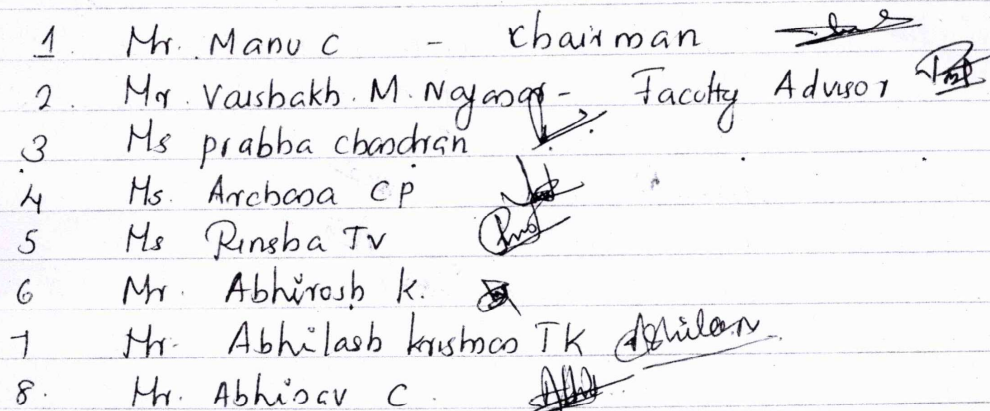 1. Mr. Manu C - Chairman
2. Mr. Vaishakh. M. - Faculty Advisor
3 Ms prabha chandran
4 Ms. Archana CP
5 Ms Rinsha TV
6 Mr. Abhirosh k.
7 Mr. Abhilash krishnan TK
8. Mr. Abhinav C.